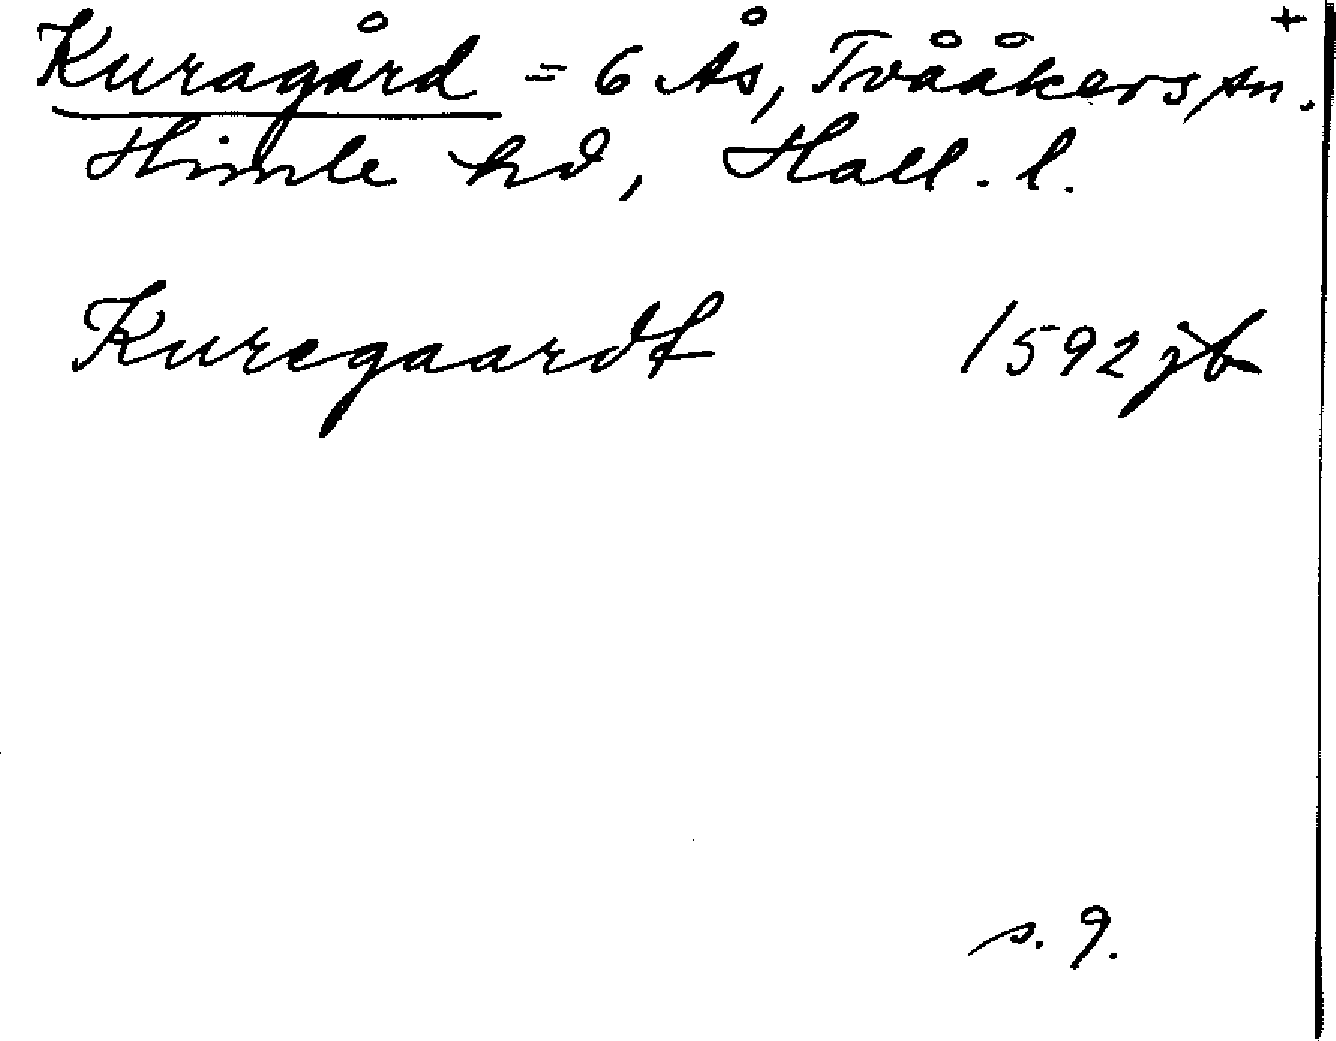 +
Kuragård = 6 Ås, Tvååkers sn.
Himle hd, Hall. l.
Kuregaardt 1592 jb
s. 9.